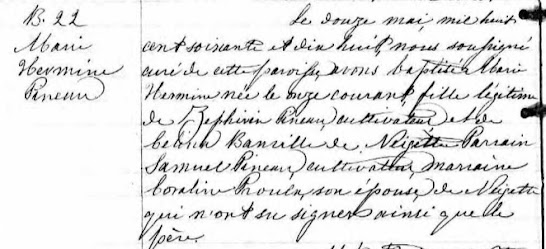 B. 22
Marie
Hermine
Pineau
Le douze mai mil huit
cent soixante et dix huit, nous soussigné
curé de cette paroisse, avons baptisé Marie
Hermine née le onze courant, fille légitime
de Zéphirin Pineau, cultivateur et de
Banville de Neigette Parrain
Samuel Pineau, cultivateur, marraine
Coraline Proulx, son épouse, de Neigette
qui n'ont su signer ainsi que le
père.